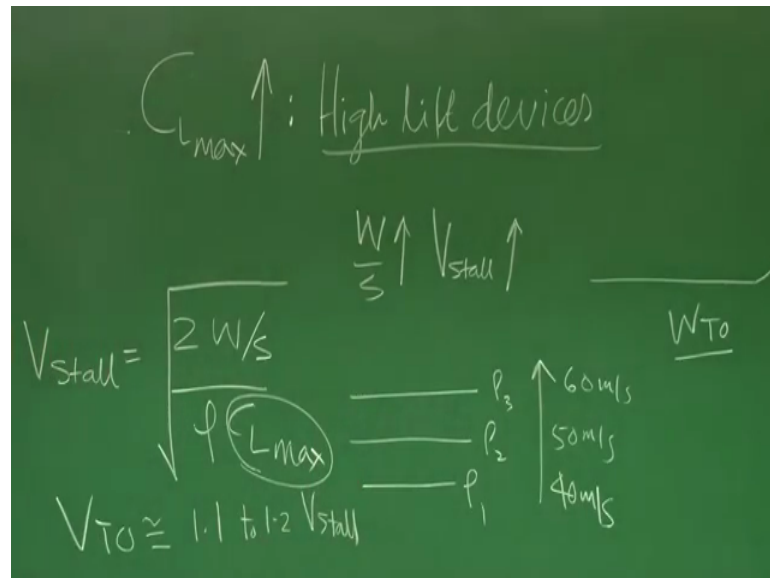 C_Lmax ↑ : High lift devices
W/S ↑ V_stall ↑
V_Stall = √(2 W/S / ρ C_Lmax)
W_TO
ρ_3 60 m/s
ρ_2 50 m/s
ρ_1 40 m/s
V_TO ≅ 1.1 to 1.2 V_Stall